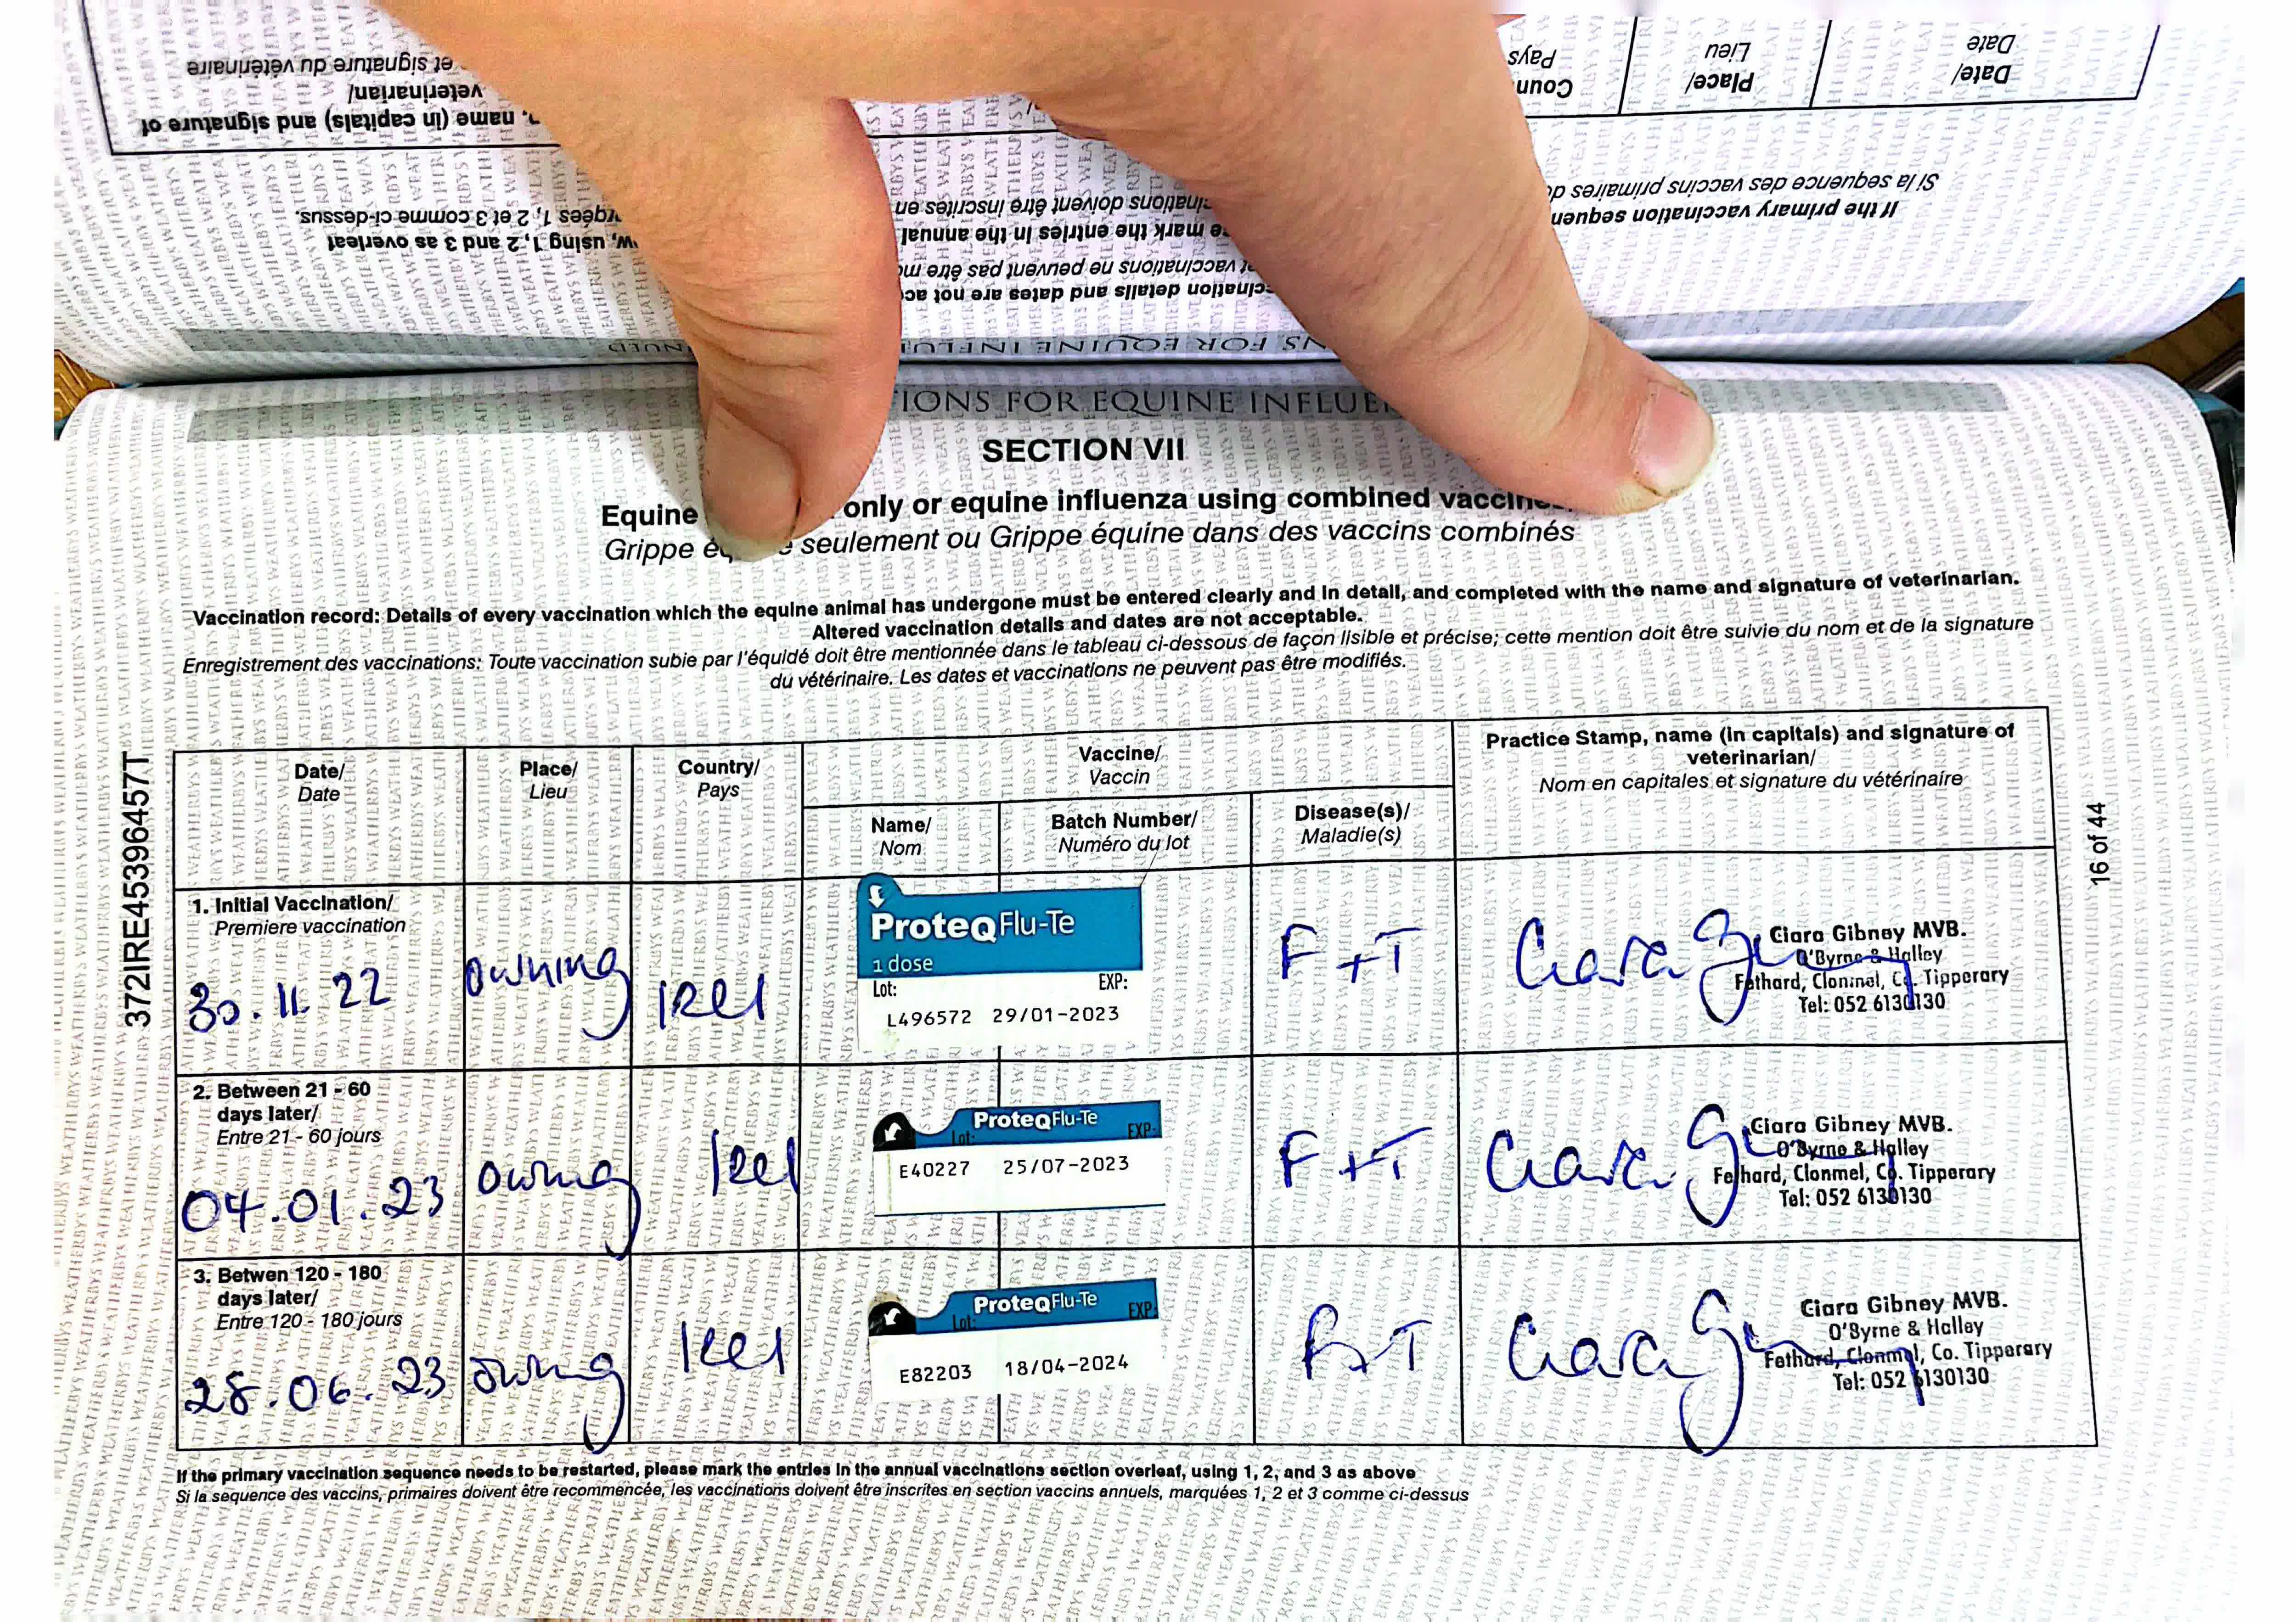 Date/
Date
Place/
Lieu
Pays
name (in capitals) and signature of
veterinarian/
et signature du vétérinaire
If the primary vaccination
Si la sequence des vaccins primaires
mark the entries in the annual
doivent être inscrites en
using 1, 2 and 3 as overleaf
1, 2 et 3 comme ci-dessus.
details and dates are not
et vaccinations ne peuvent pas être
FOR EQUINE
FOR EQUINE
SECTION VII
Equine only or equine influenza using combined
Grippe seulement ou Grippe équine dans des vaccins combinés
Vaccination record: Details of every vaccination which the equine animal has undergone must be entered clearly and in detail, and completed with the name and signature of veterinarian.
Altered vaccination details and dates are not acceptable.
Enregistrement des vaccinations: Toute vaccination subie par l'équidé doit être mentionnée dans le tableau ci-dessous de façon lisible et précise; cette mention doit être suivie du nom et de la signature
du vétérinaire. Les dates et vaccinations ne peuvent pas être modifiés.
372IRE45396457T
16 of 44
Date/
Date
Place/
Lieu
Country/
Pays
Vaccine/
Vaccin
Name/
Nom
Batch Number/
Numéro du lot
Disease(s)/
Maladie(s)
Practice Stamp, name (in capitals) and signature of
veterinarian/
Nom en capitales et signature du vétérinaire
1. Initial Vaccination/
Premiere vaccination
30.11.22
Owning
Irel
ProteqFlu-Te
1 dose
Lot: EXP:
L496572 29/01-2023
F+T
Ciara Gibney MVB.
O'Byrne & Halley
Fethard, Clonmel, Co. Tipperary
Tel: 052 6130130
2. Between 21 - 60
days later/
Entre 21 - 60 jours
04.01.23
Owning
Irel
ProteqFlu-Te
Lot: EXP:
E40227 25/07-2023
F+T
Ciara Gibney MVB.
O'Byrne & Halley
Fethard, Clonmel, Co. Tipperary
Tel: 052 6130130
3. Betwen 120 - 180
days later/
Entre 120 - 180 jours
28.06.23
Owning
Irel
ProteqFlu-Te
Lot: EXP:
E82203 18/04-2024
F+T
Ciara Gibney MVB.
O'Byrne & Halley
Fethard, Clonmel, Co. Tipperary
Tel: 052 6130130
If the primary vaccination sequence needs to be restarted, please mark the entries in the annual vaccinations section overleaf, using 1, 2, and 3 as above
Si la sequence des vaccins, primaires doivent être recommencée, les vaccinations doivent être inscrites en section vaccins annuels, marquées 1, 2 et 3 comme ci-dessus